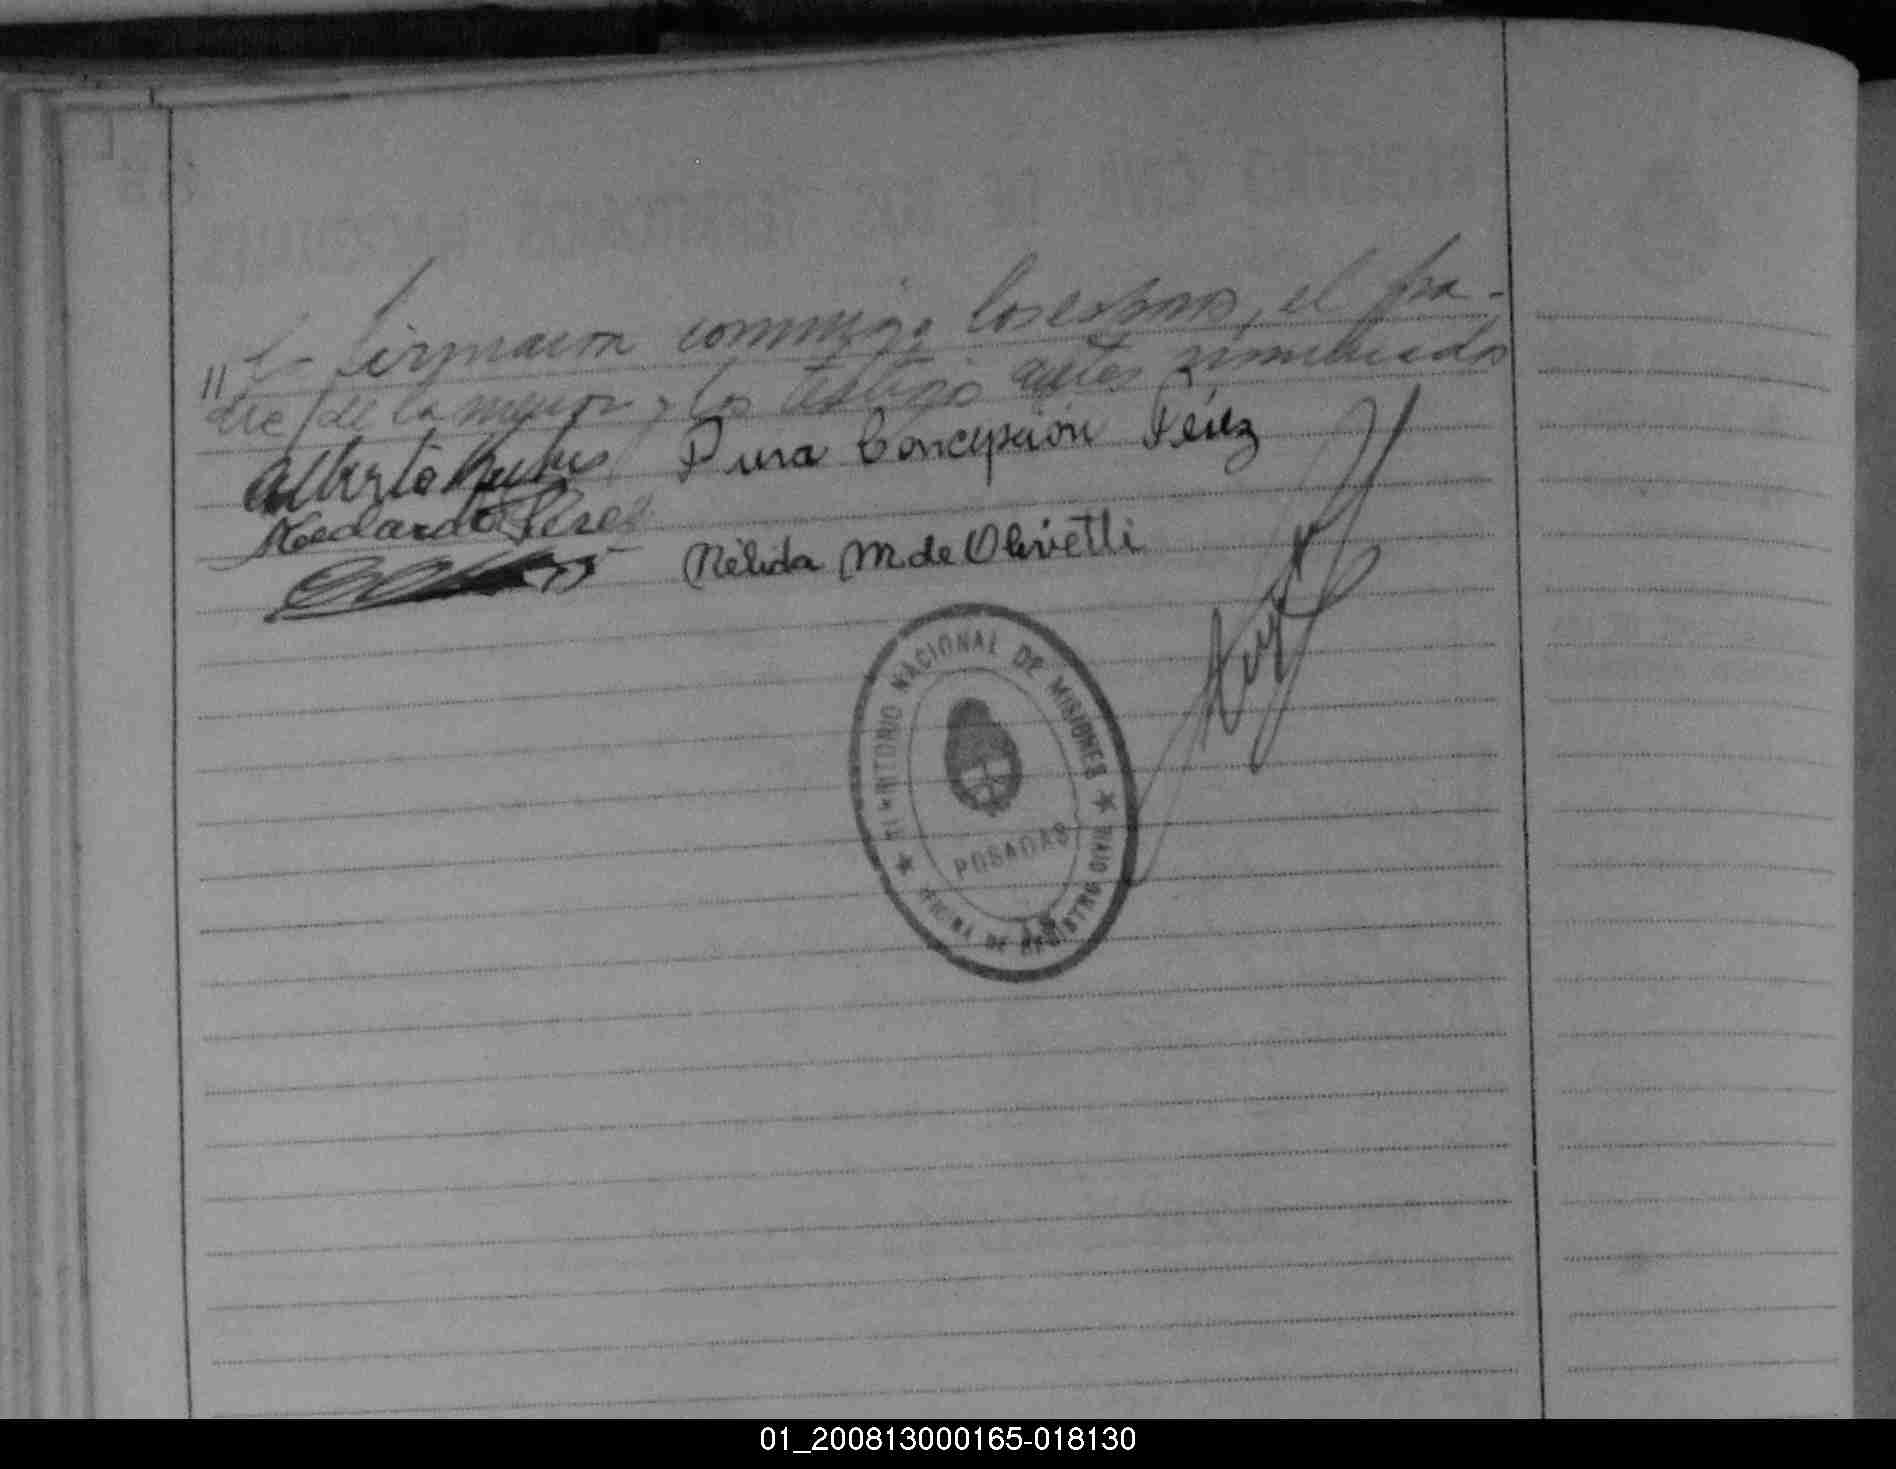 " la firmaron conmigo los esposos, el pa-
dre de la menor y los testigos antes nombrados
Alberto
Pura Concepción Pérez
Medardo Perez
Nélida M de Olivetti
TERRITORIO NACIONAL DE MISIONES
POSADAS
OFICINA DE REGISTRO CIVIL
01_200813000165-018130